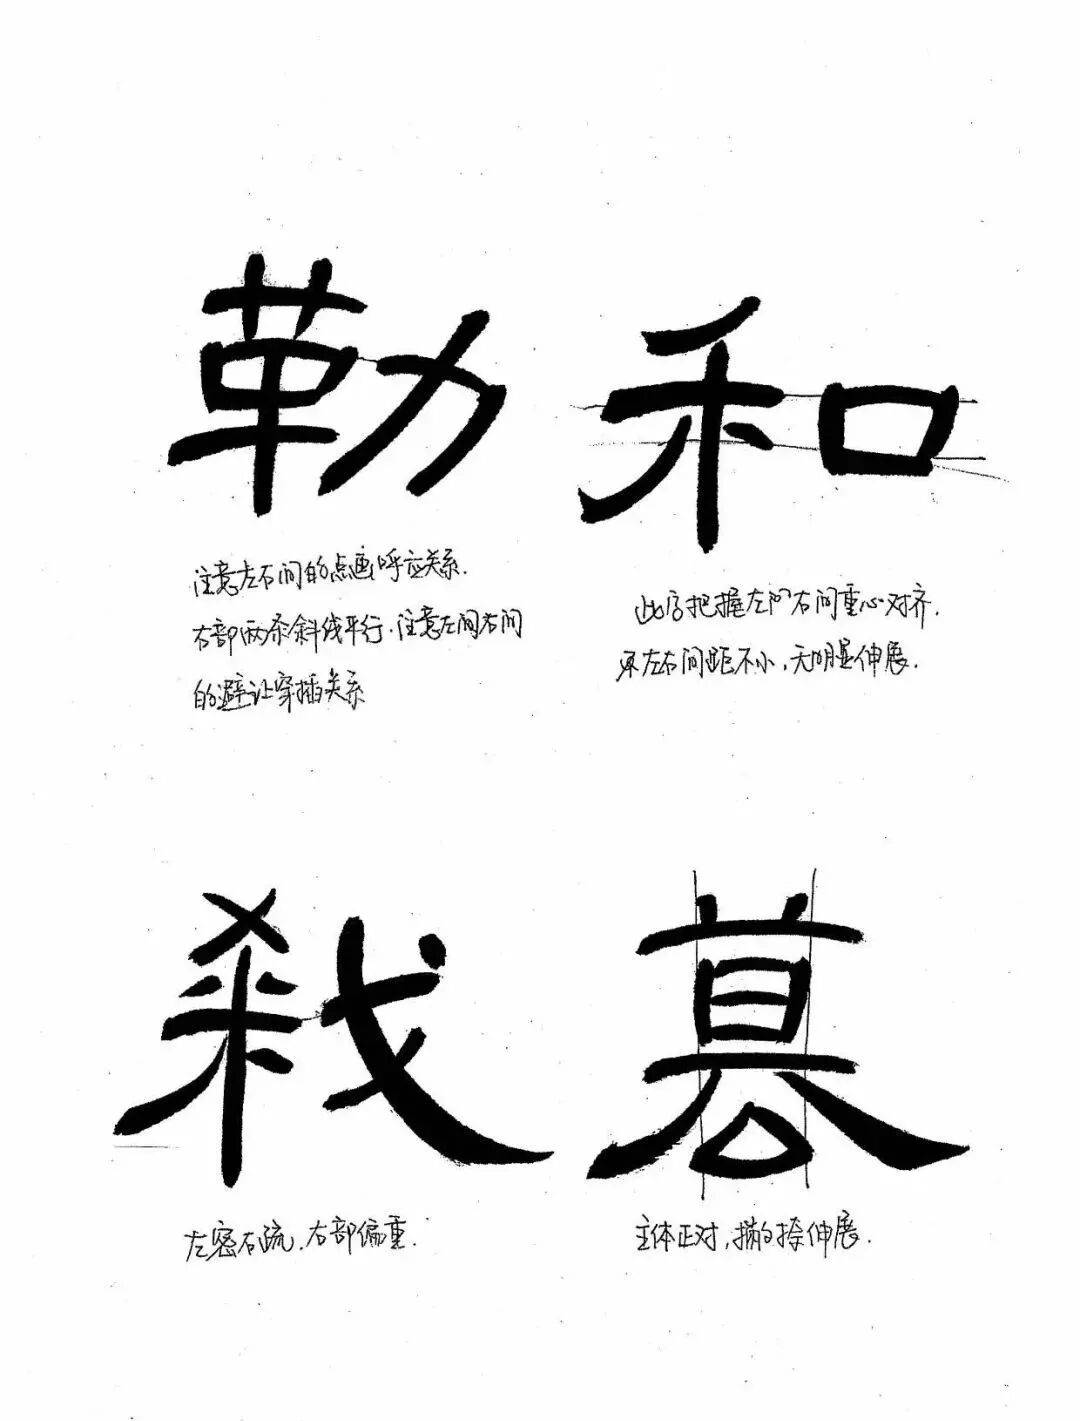 勒
注意左右间的点画呼应关系.
右部两条斜线平行.注意左间右间
的避让穿插关系
和
此字把握左右间重心对齐.
左右间距不小,无明显伸展.
弑
左密右疏.右部偏重.
篡
主体正对,撇的捺伸展.